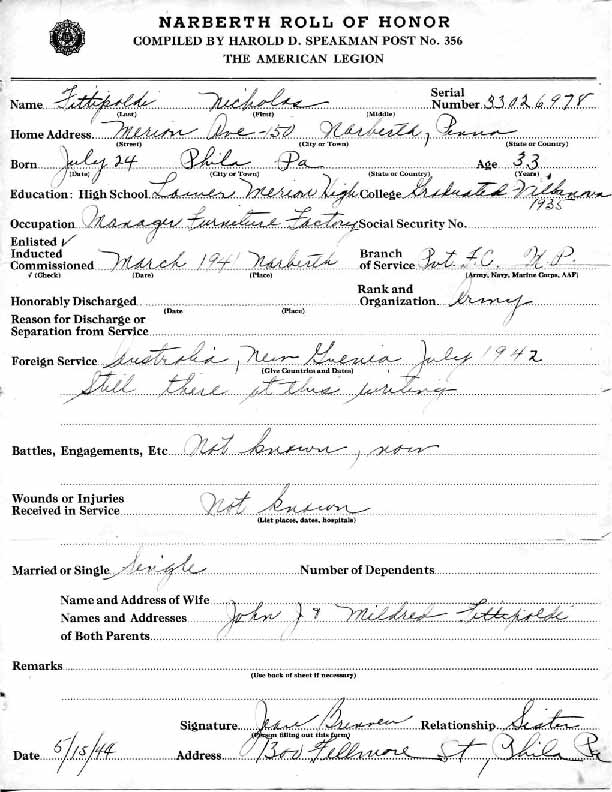 NARBERTH ROLL OF HONOR
COMPILED BY HAROLD D. SPEAKMAN POST No. 356
THE AMERICAN LEGION
Name Fittipoldi Nicholas Serial Number 33026978
(Last) (First) (Middle)
Home Address Merion Ave-50 Narberth, Penna
(Street) (City or Town) (State or Country)
Born July 24 Phila Pa Age 33
(Date) (City or Town) (State or Country) (Years)
Education: High School Lower Merion High College Graduated Villanova
1935
Occupation Manager Furniture Factory Social Security No.
Enlisted √
Inducted
Commissioned March 1941 Narberth Branch of Service Pvt. F.C. M.P.
√ (Check) (Date) (Place) (Army, Navy, Marine Corps, AAF)
Honorably Discharged Rank and Organization Army
(Date (Place)
Reason for Discharge or
Separation from Service
Foreign Service Australia, New Guenia July 1942
(Give Countries and Dates)
Still there at this writing
Battles, Engagements, Etc Not known, now
Wounds or Injuries
Received in Service Not known
(List places, dates, hospitals)
Married or Single Single Number of Dependents
Name and Address of Wife
Names and Addresses John J & Mildred Fittipoldi
of Both Parents
Remarks
(Use back of sheet if necessary)
Signature Jean Brennen Relationship Sister
(Person filling out this form)
Date 5/15/44 Address Fellmore St, Phila Pa